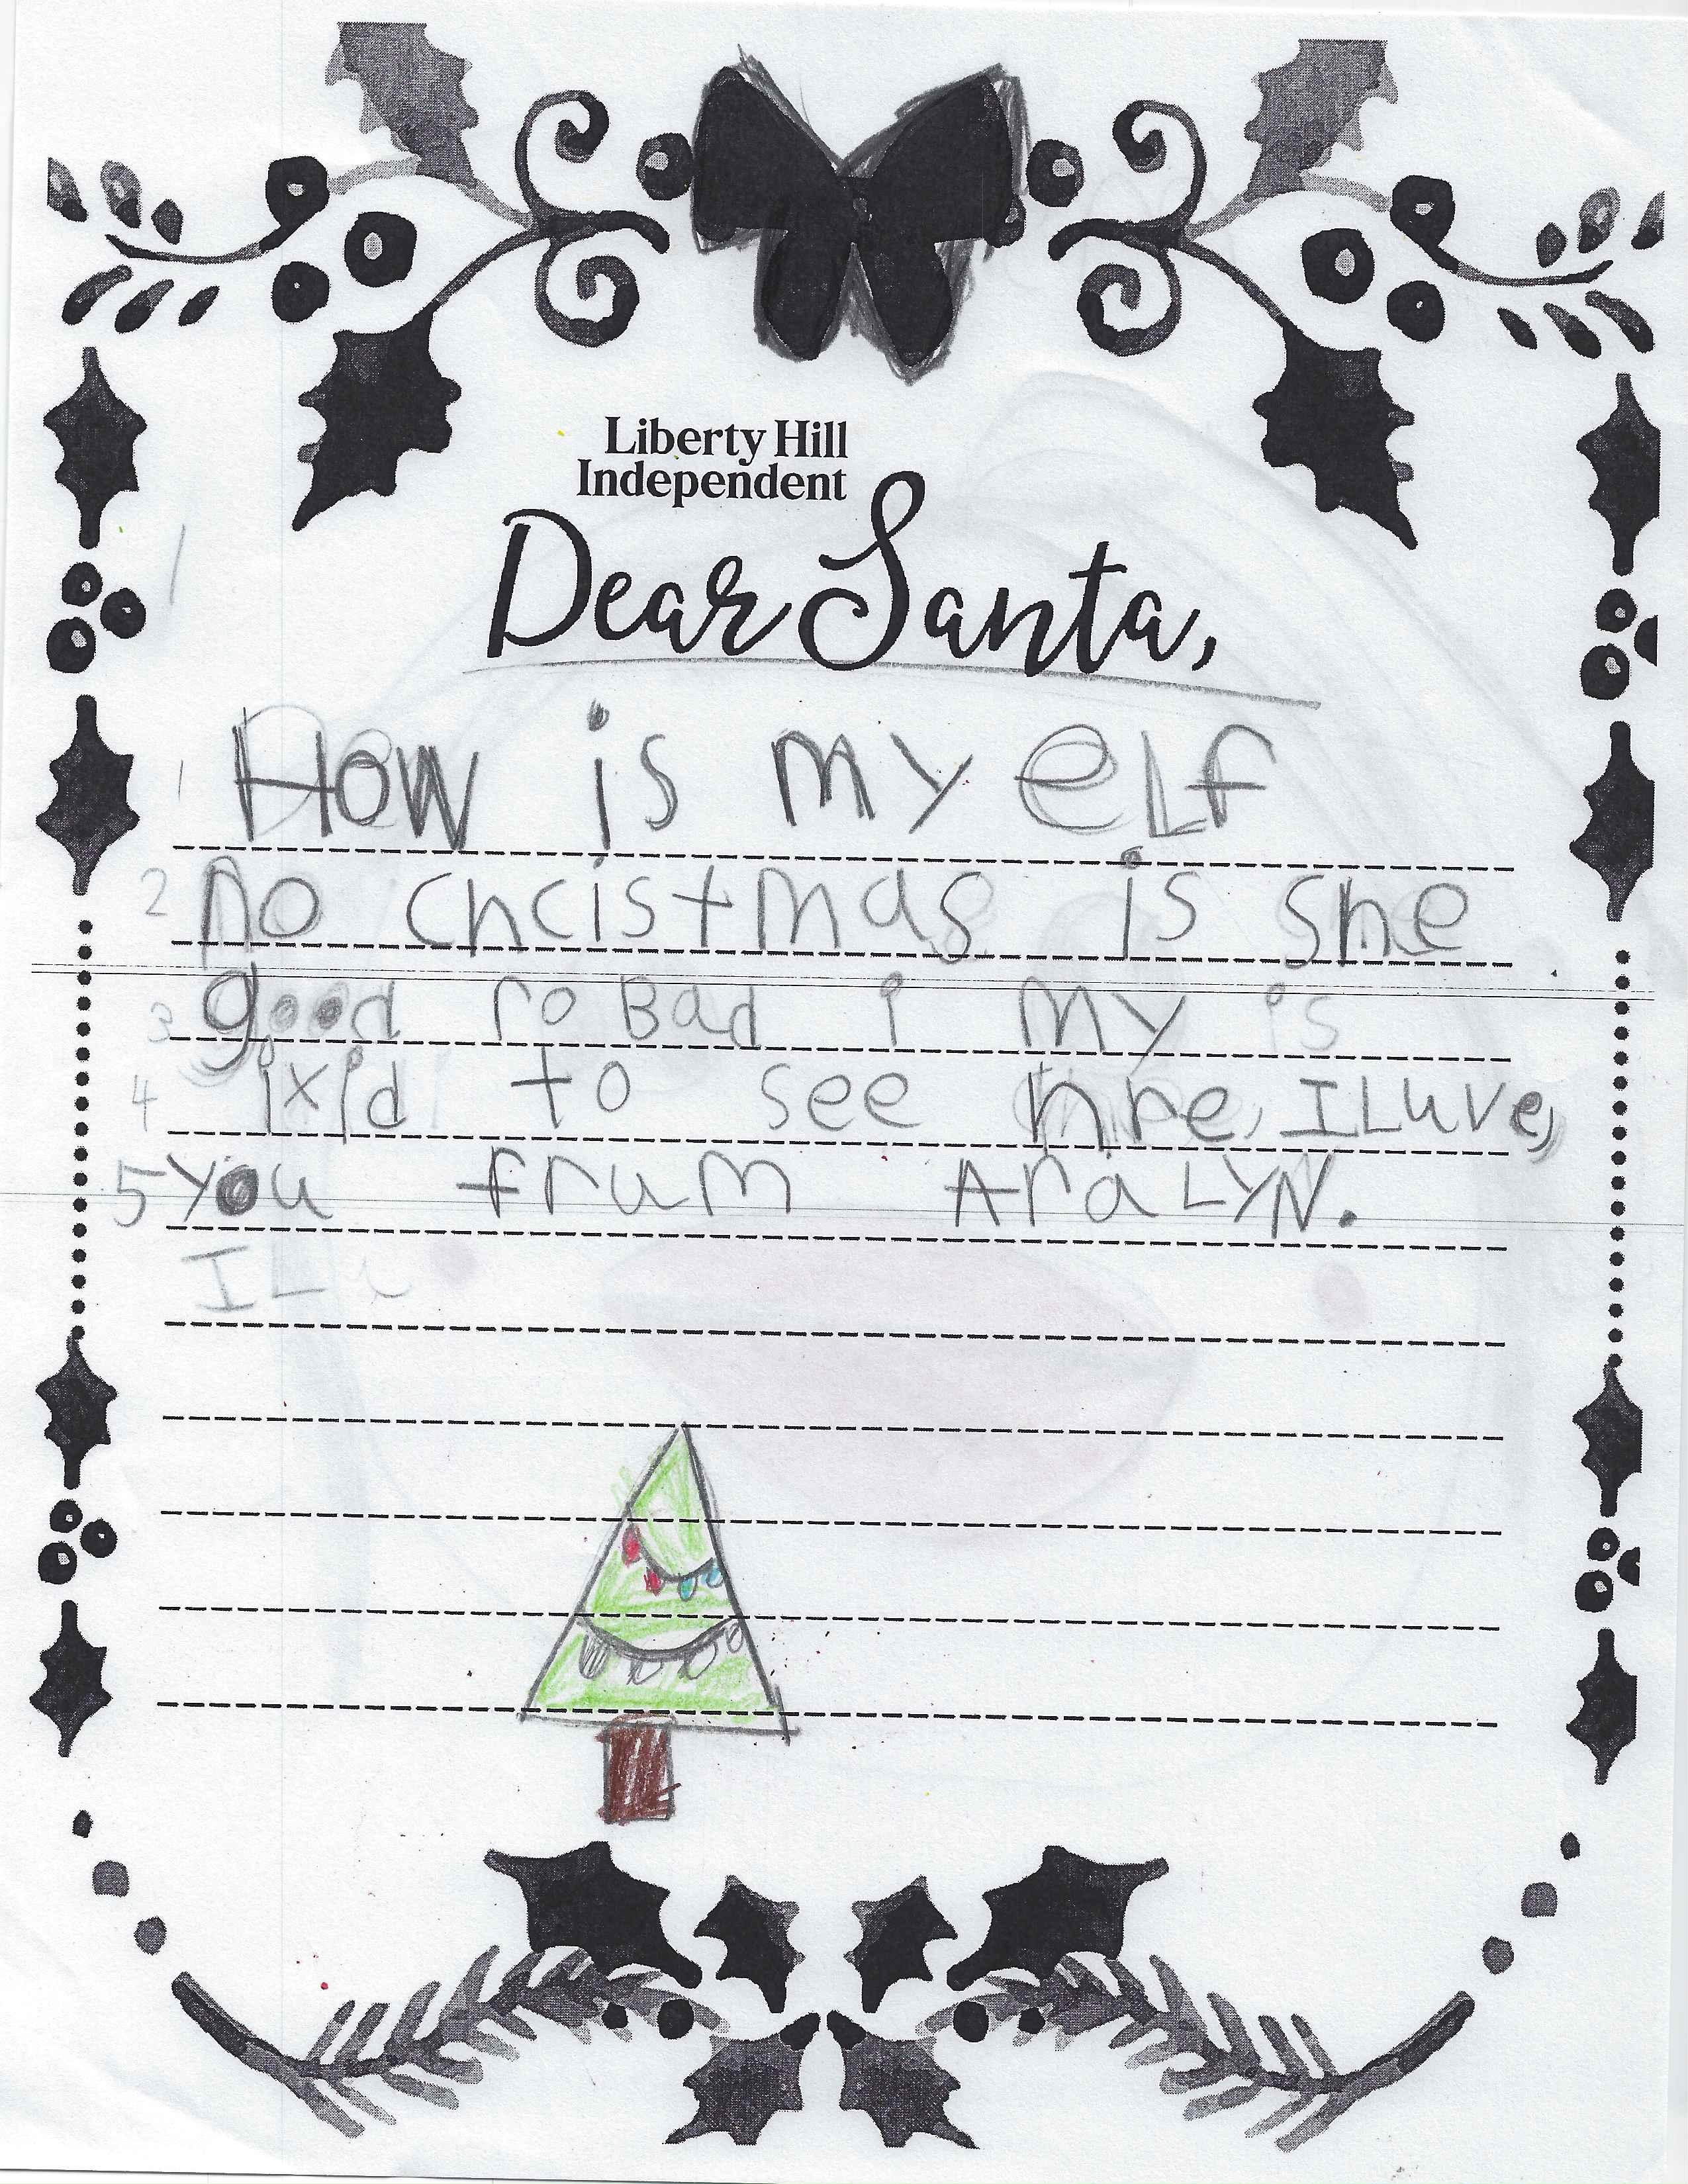 Liberty Hill
Independent
Dear Santa,
1 How is my eLf
2 no christmas is she
3 good ro Bad i my is
4 ixid to see hre, I Luve,
5 you frum AraLYN.
I L